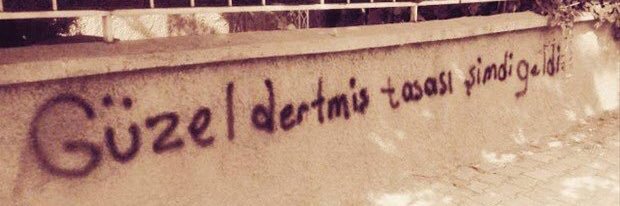 Güzel dertmiş tasası şimdi geldi.